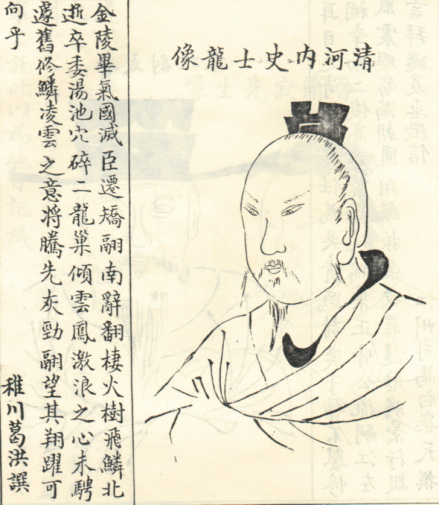 清河内史士龍像
金陵畢氣國滅臣遷矯翮南辭翻棲火樹飛鱗北
逝卒委湯池穴碎二龍巢傾雲鳳激浪之心未騁
遽舊修鱗凌雲之意將騰先灰勁翮望其翔躍可
向乎
稚川葛洪譔